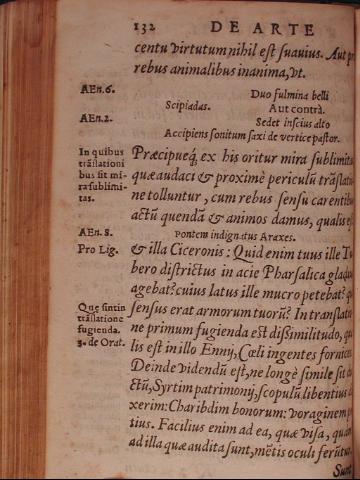 132 DE ARTE
centu virtutum nihil est suavius. Aut pro
rebus animalibus inanima, vt.
AEn. 6.
Duo fulmina belli
Scipiadas. Aut contrà.
AEn. 2.
Sedet inscius alto
Accipiens sonitum saxi de vertice pastor.
In quibus
trãslationi
bus sit mi
ra sublimi-
tas.
Præcipueq́; ex his oritur mira sublimita
quæ audaci & proximè periculũ trãslatio
ne tolluntur, cum rebus sensu carentibus
actũ quendã & animos damus, qualis est
AEn. 8.
Pontem indignatus Araxes.
Pro Lig.
& illa Ciceronis: Quid enim tuus ille Tu
bero districtus in acie Pharsalica gladius
agebat? cuius latus ille mucro petebat? qui
Que sint in
trãslatione
fugienda.
3. de Orat.
sensus erat armorum tuorũ? In translatio
ne primum fugienda est dißimilitudo, qua
lis est in illo Ennij, Cœli ingentes fornices.
Deinde videndũ est, ne longè simile sit du
ctũ, Syrtim patrimonij, scopulũ libentius di
xerim: Charibdim bonorum: voraginem po
tius. Facilius enim ad ea, quæ visa, quàm
ad illa quæ audita sunt, mẽtis oculi ferũtur.
Sunt